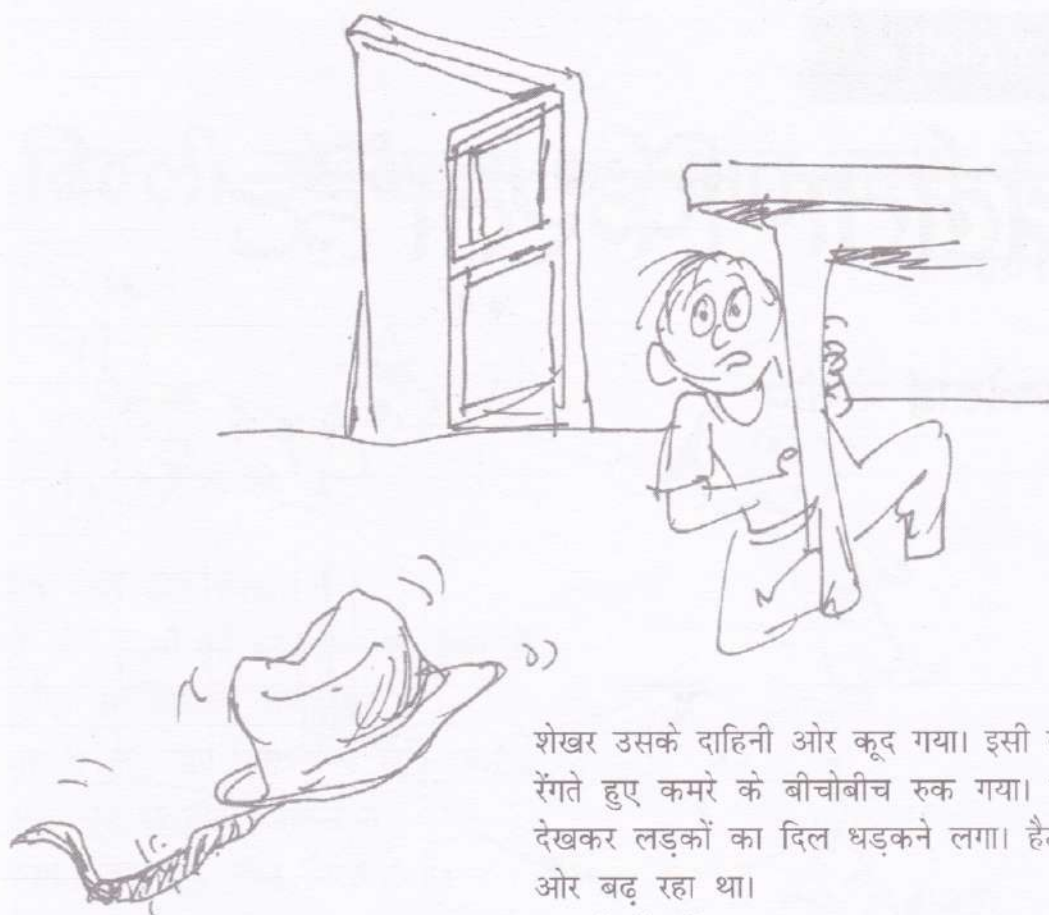 शेखर उसके दाहिनी ओर कूद गया। इसी
रेंगते हुए कमरे के बीचोबीच रुक गया।
देखकर लड़कों का दिल धड़कने लगा।
ओर बढ़ रहा था।